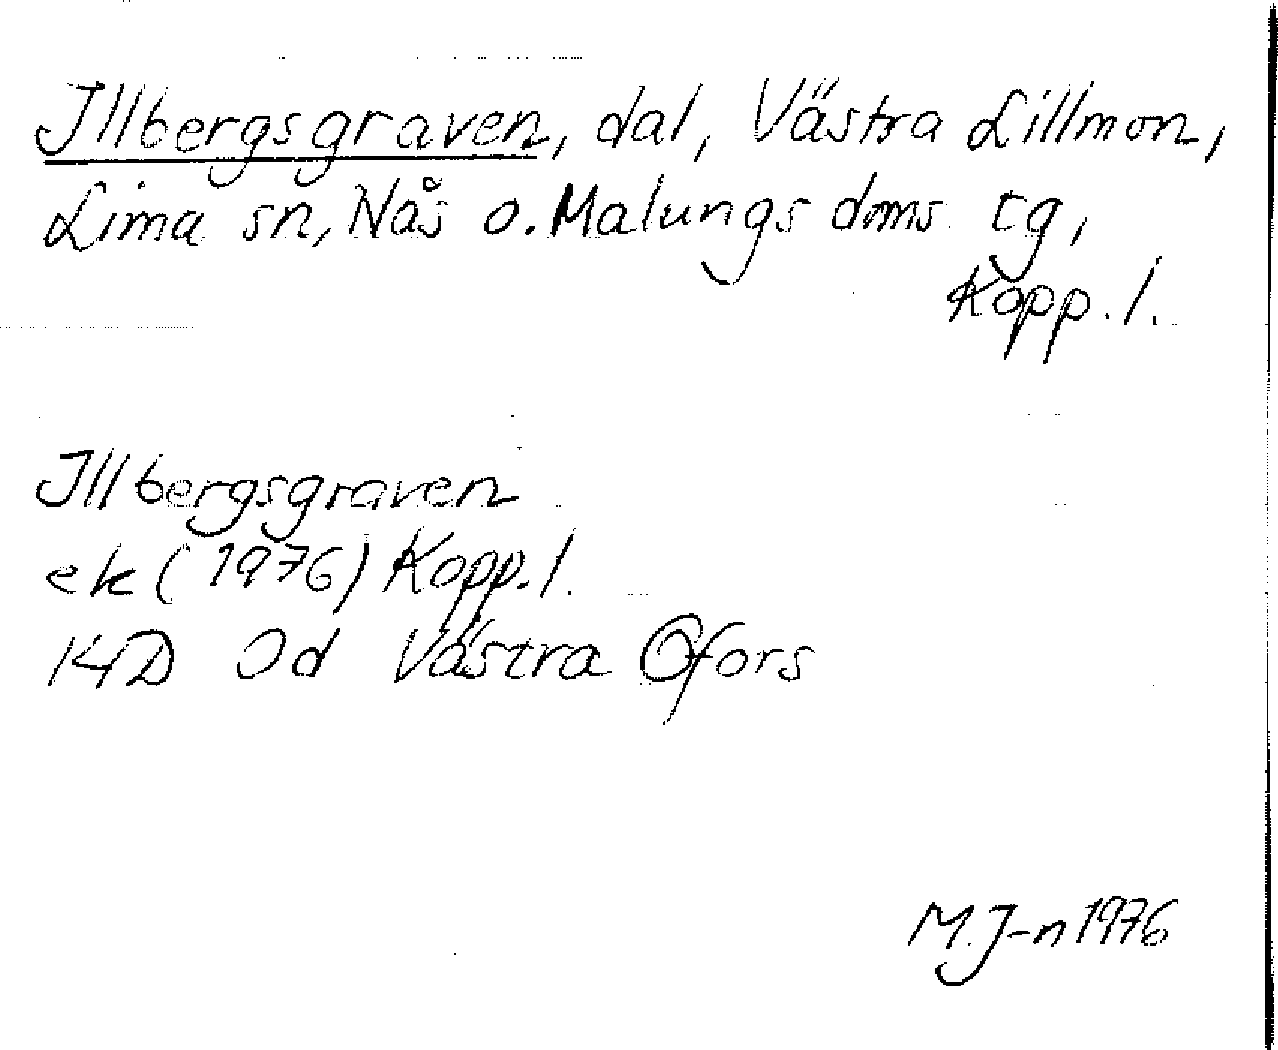 Illbergsgraven, dal, Västra Lillmon,
Lima sn, Nås o. Malungs doms. tg,
Kopp. l.
Illbergsgraven
ek (1976) Kopp. l.
14D 0d Västra Ofors
M.J-n 1976